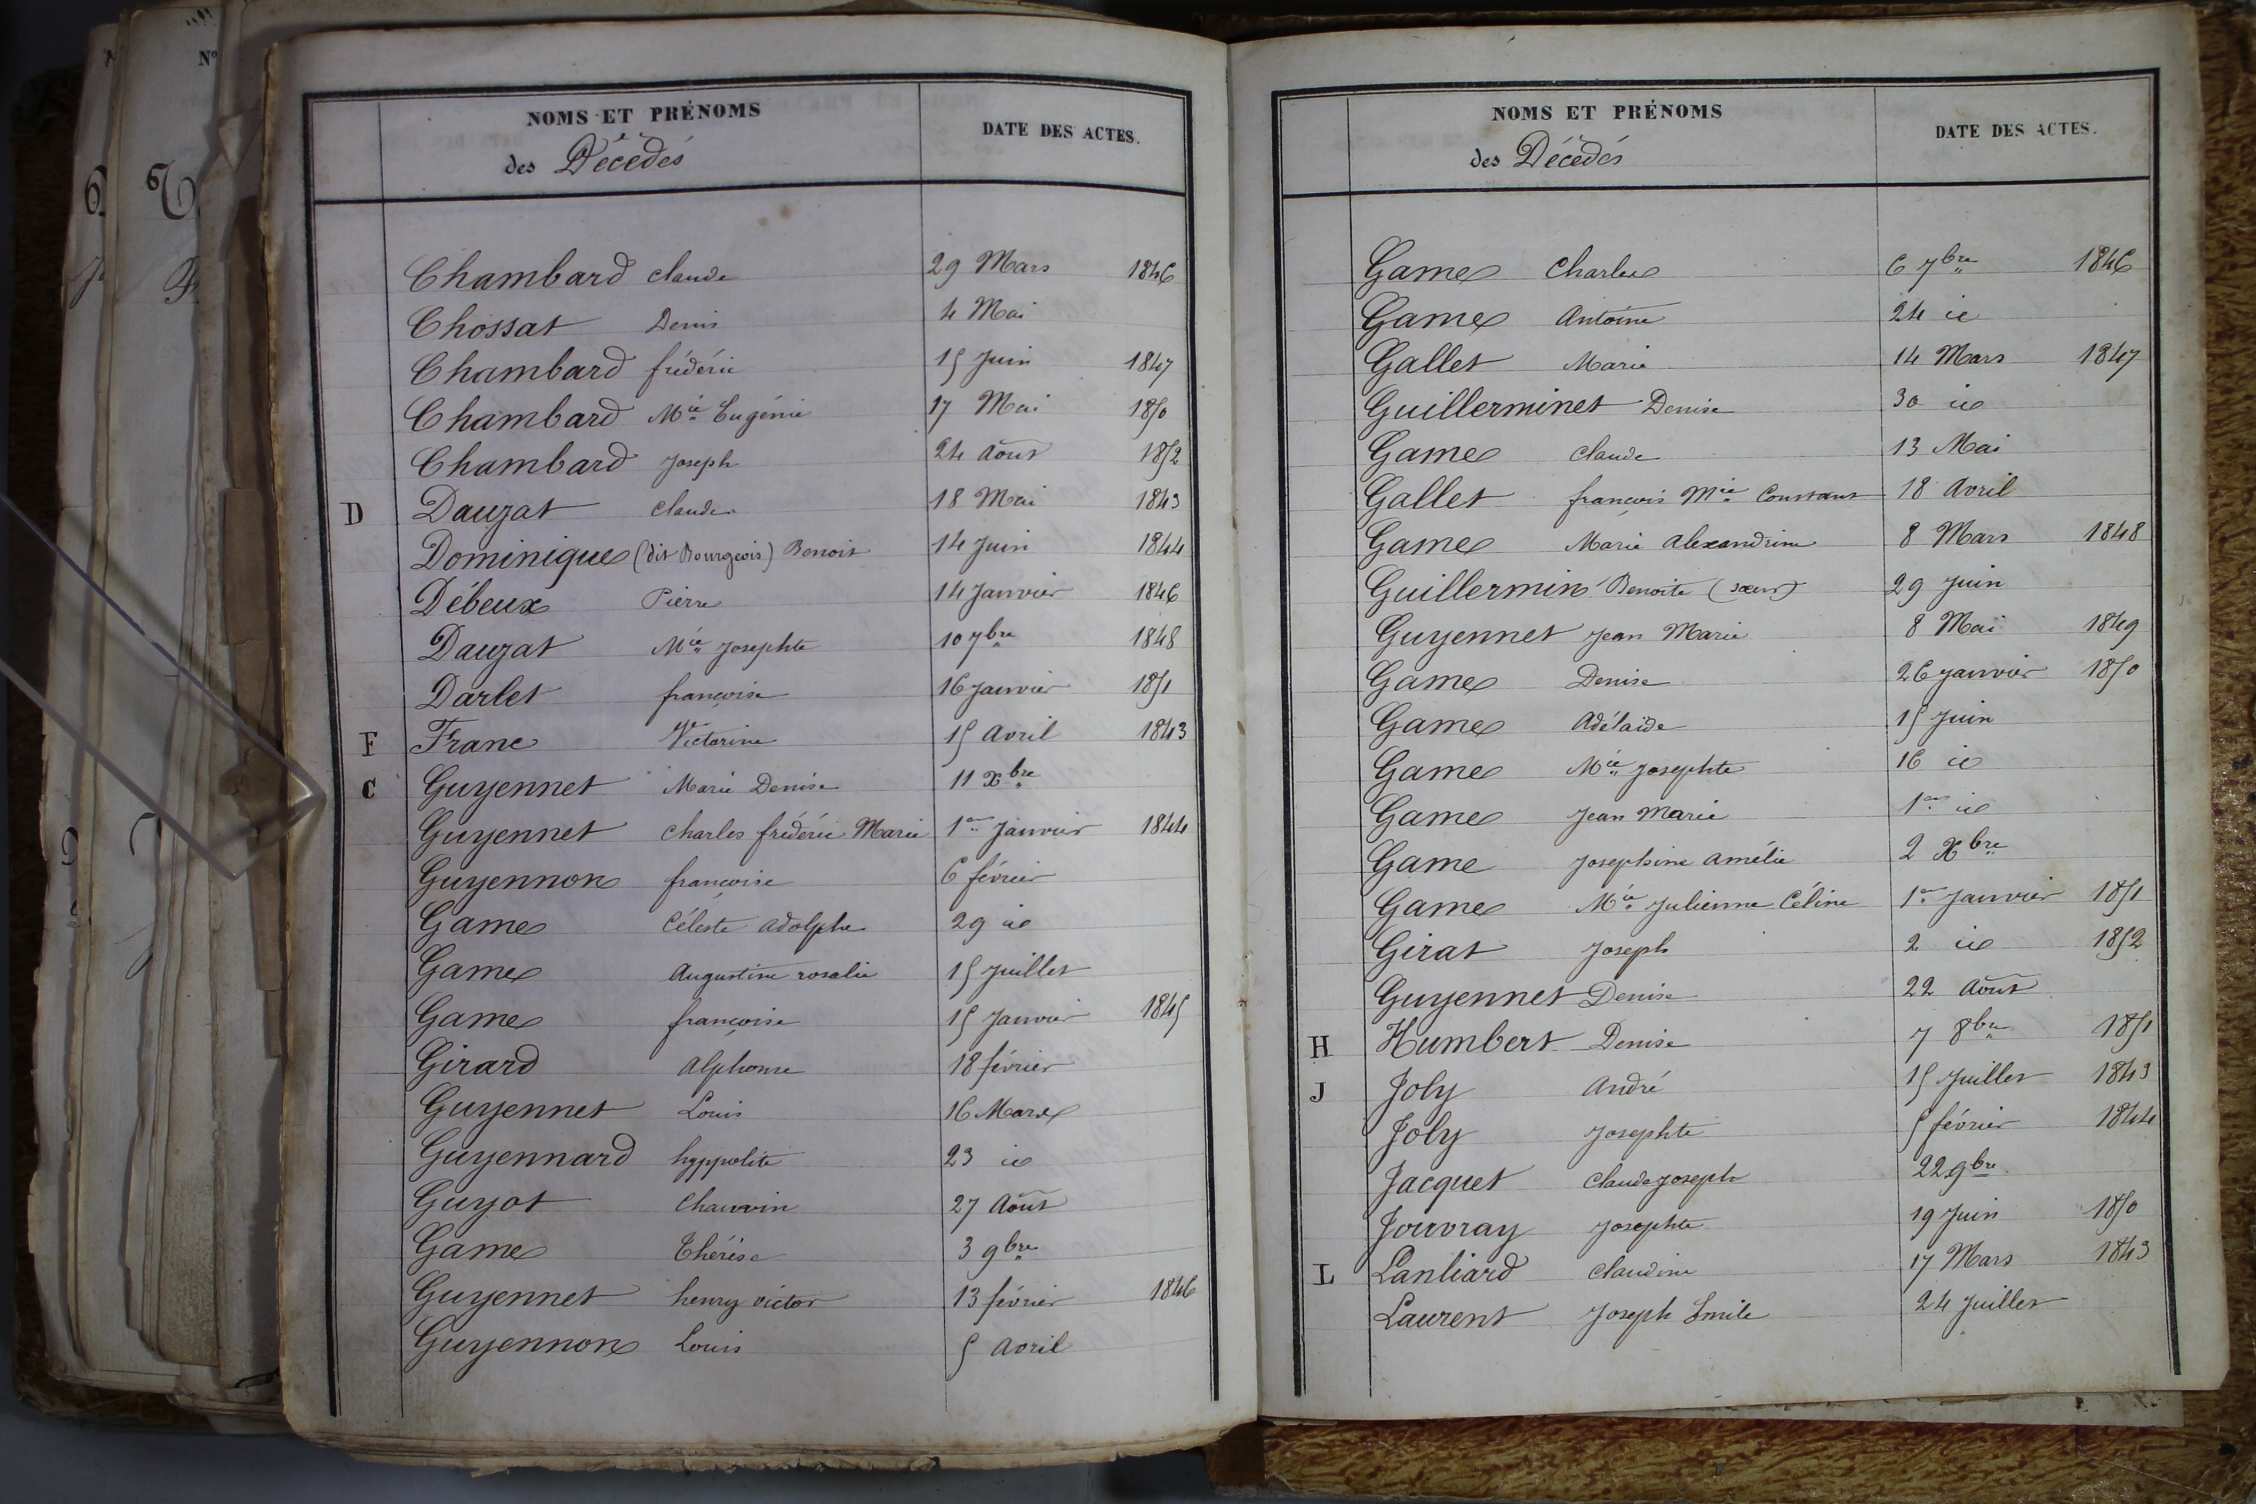 NOMS ET PRÉNOMS
des Décédés
DATE DES ACTES.
Chambard Claude 29 Mars 1846
Chossat Denis 4 Mai
Chambard frédéric 15 Juin 1847
Chambard Mie Eugénie 17 Mai 1850
Chambard Joseph 24 Août 1852
D Dauzat Claude 18 Mai 1843
Dominique (dit Bourgeois) Benoit 14 Juin 1844
Débeux Pierre 14 Janvier 1846
Dauzat Mie Josephte 10 7bre 1848
Darlet françoise 16 Janvier 1851
F Franc Victorine 15 Avril 1843
C Guyennet Marie Denise 11 Xbre
Guyennet Charles frédéric Marie 1er Janvier 1844
Guyennon françoise 6 février
Game Céleste Adolphe 29 id
Game Augustine rosalie 15 Juillet
Game françoise 15 Janvier 1845
Girard Alphonse 18 février
Guyennet Louis 16 Mars
Guyennard hyppolite 23 id
Guyot Chauvin 27 Août
Game Thérèse 3 9bre
Guyennet henry victor 13 février 1846
Guyennon Louis 5 Avril
NOMS ET PRÉNOMS
des Décédés
DATE DES ACTES.
Game Charles 6 7bre 1846
Game Antoine 24 id
Gallet Marie 14 Mars 1847
Guillerminet Denise 30 id
Game Claude 13 Mai
Gallet françois Mie Constant 18 Avril
Game Marie Alexandrine 8 Mars 1848
Guillermin Benoite (sœur) 29 Juin
Guyennet Jean Marie 8 Mai 1849
Game Denise 26 Janvier 1850
Game Adélaïde 15 Juin
Game Mie Josephte 16 id
Game Jean Marie 1er id
Game Josephine Amélie 2 Xbre
Game Mie Julienne Céline 1er Janvier 1851
Girat Joseph 2 id 1852
Guyennet Denise 22 Août
H Humbert Denise 7 8bre 1851
J Joly André 15 Juillet 1843
Joly Josephte 5 février 1844
Jacquet Claude Joseph 22 9bre
Jouvray Josephte 19 Juin 1850
L Lanliard Claudine 17 Mars 1843
Laurent Joseph Emile 24 Juillet